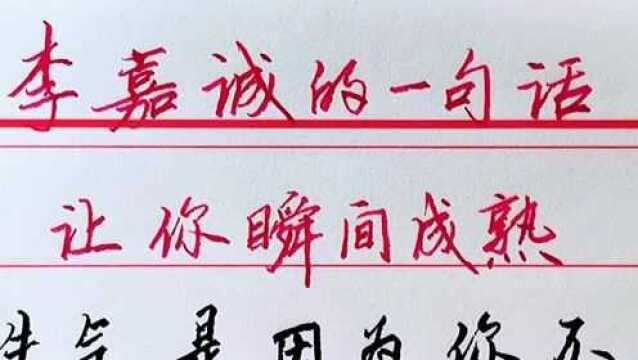 李嘉诚的一句话
让你瞬间成熟
生气是因为你不